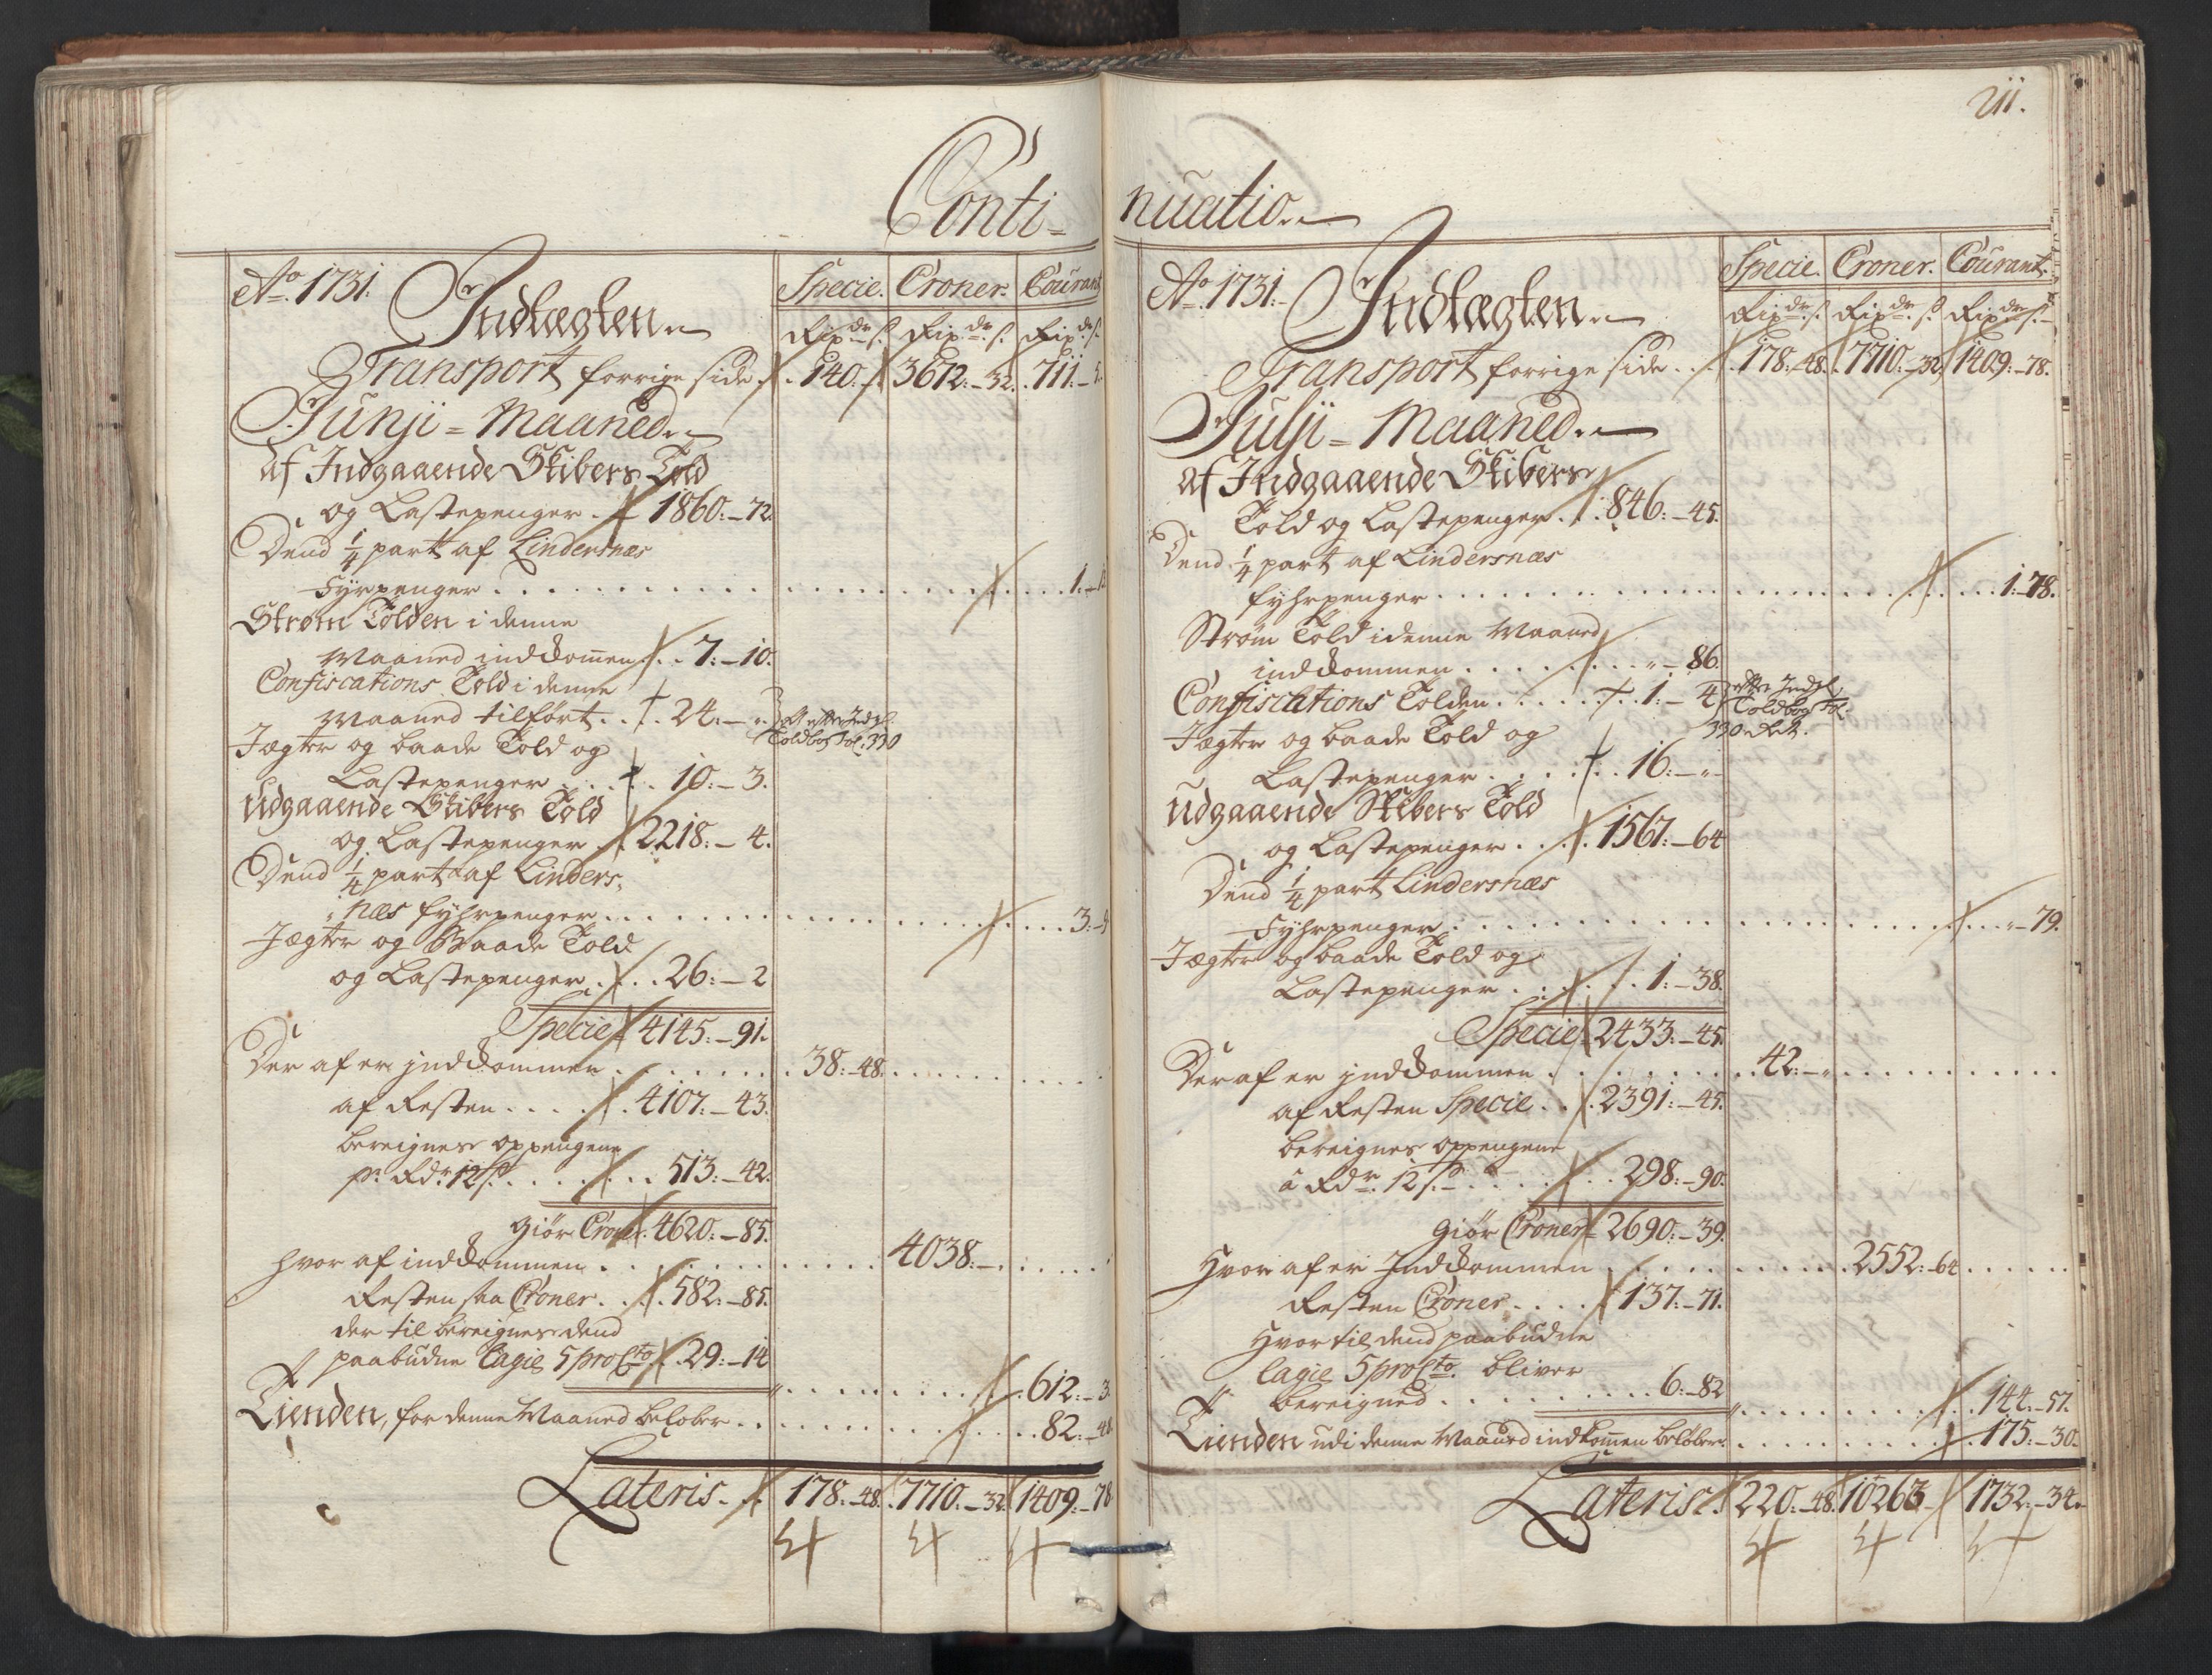 211.
Conti=
Ao. 1731. Indtægten Specie. Croner. Courant
Rixdr. s. Rixdr. s. Rixdr. s.
Transport forrige side . . 140. 3672:-32. 711:-
Junji=Maaned
Af Indgaaende Skibers Told
og Lastepenger . 1860:-72.
Dend 1/4 part af Lindersnæs
Fyrpenger . . . . . . 1:-
Strøm Tolden i denne
Maaned indkommen . . 7:-10.
Confiscations Told i denne
Maaned tilført . . 24:-" efter Indg.
Toldbog Fol: 330
Jægter og baade Told og
Lastepenger . . . 10:-3.
Udgaaende Skibers Told
og Lastepenger . 2218:-4.
Dend 1/4 part af Linders-
næs fyhrpenger . . . . . . 3:-
Jægter og Baade Told
og Lastepenger . . . 26:-2
Specie 4145:-91.
Der af er indkommen . . . . . 38:-48.
af Resten . . . . 4107:-43.
bereignes oppengene
pr. Rdr. 12 s. . . . . 513:-42.
Giør Croner 4620:-85.
hvor af indkommen . . . . . . 4038:-
Resten saa Croner . . . 582:-85.
der til bereignes dend
paabudne lagie 5 pro Cto . . 29:-14
" . . . . . . 612:-3
Tienden, for denne Maaned beløber . . . . . 82:-48
Lateris. 178:-48. 7710:-32 1409:-78
nuatio
Ao. 1731. Indtægten Specie. Croner. Courant.
Rixdr. s. Rixdr. s. Rixdr. s.
Transport forrige side . . 178:-48. 7710:-32 1409:-78.
Julji=Maaned
Af Indgaaende Skibers
Told og Lastepenger . . 846:-45.
Dend 1/4 part af Lindersnæs
fyhrpenger . . . . . . 1:-78.
Strøm Told i denne Maaned
indkommen . . . . . "-86.
Confiscations Tolden . . . . 1:-4 efter Indg.
Toldbog Fol.
330
Jægter og baade Told og
Lastepenger . . . . . 16:-"-
Udgaaende Skibers Told
og Lastepenger . . . 1567:-64
Dend 1/4 part Lindersnæs
Fyhrpenger . . . . . . "-79.
Jægter og baade Told og
Lastepenger . . . . 1:-38.
Specie 2433:-45.
Der af er indkommen . . . . . 42:-"
af Resten Specie . . 2391:-45.
bereignes oppengene
à Rdr. 12 s. . . . . . 298:-90.
Giør Croner 2690:-39.
Hvor af er Indkommen . . . . . . 2552:-64
Resten Croner . . . . 137:-71.
Hvor til dend paabudne
lagie 5 pro Cto. bliver
bereigned . . . . . . 6:-82
" . . . . . . 144:-57.
Tienden udi denne Maaned indkommen beløber . . . . . 175:-30.
Lateris. 220:-48. 10263- 1732:-34.